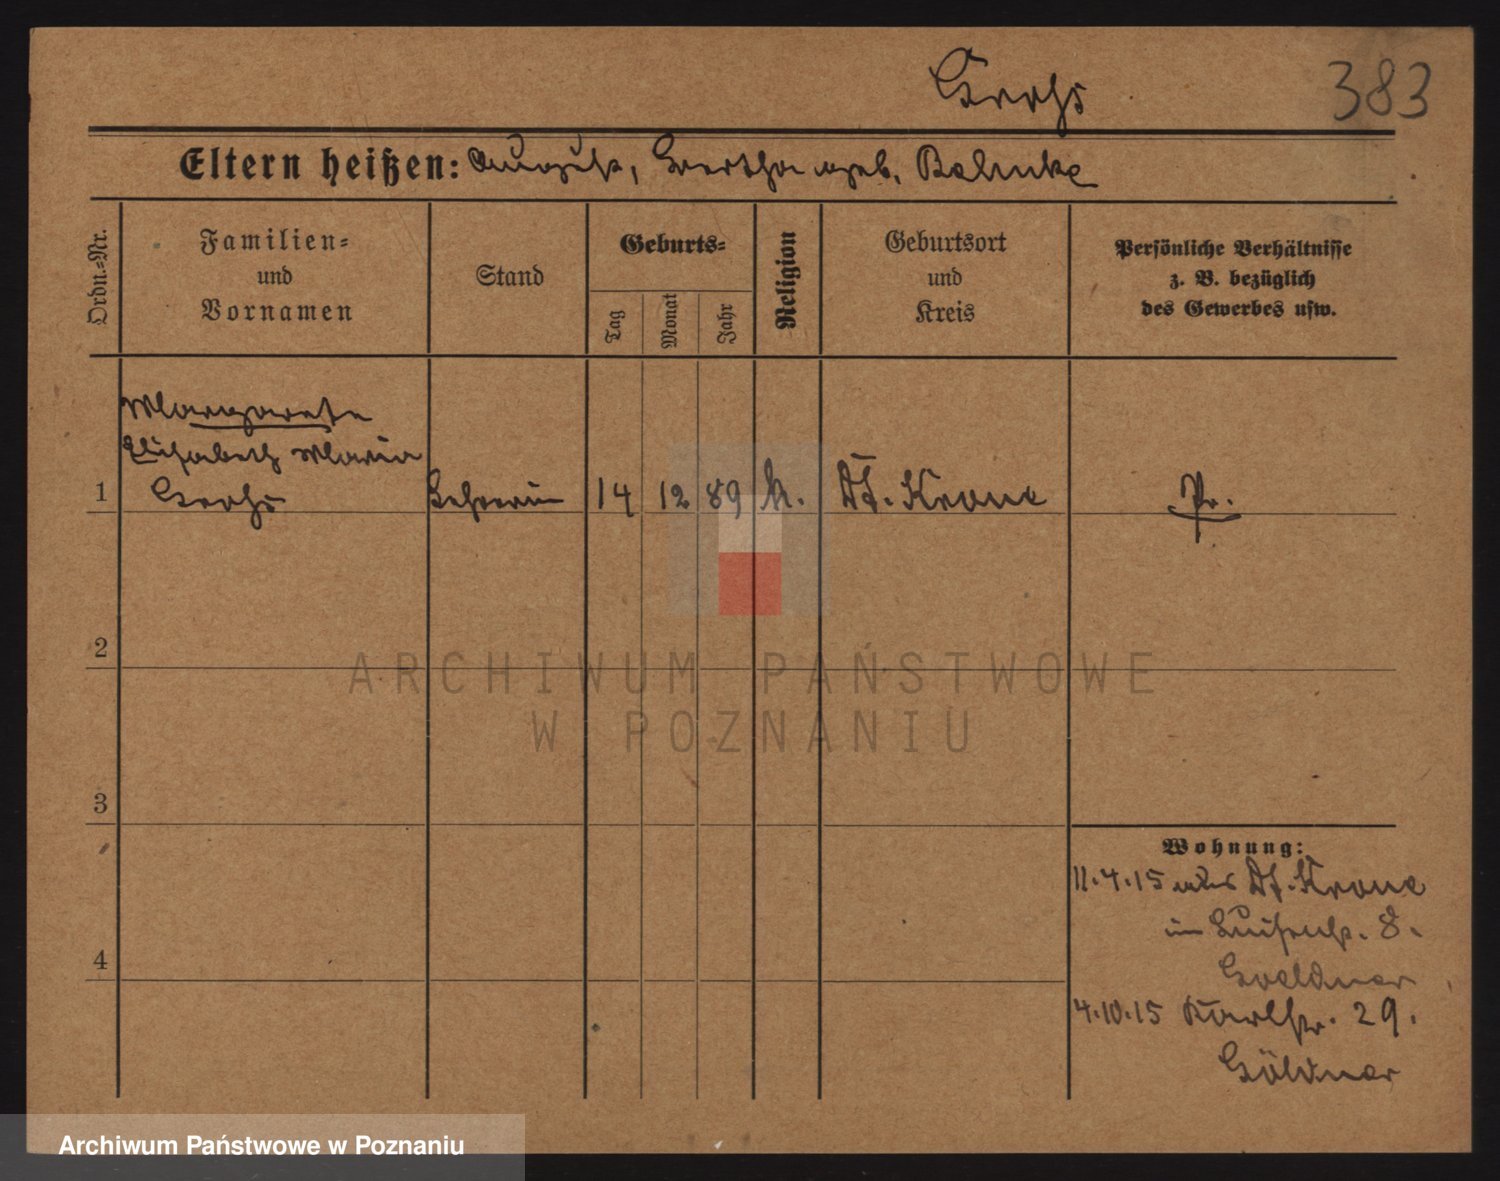 383
Eltern heißen: August, Bertha geb. Behnke
Ordn.=Nr.
Familien=
und
Vornamen
Stand
Geburts=
Tag
Monat
Jahr
Religion
Geburtsort
und
Kreis
Persönliche Verhältnisse
z. B. bezüglich
des Gewerbes usw.
Margarete
Elisabeth Maria
1 Lehrerin 14 12 89 k. Dt. Krone Pr.
2
3
4
Wohnung:
11.4.15 aus Dt. Krone
in Luisenstr. 8.
Goeldner
4.10.15 Karlstr. 29.
Göldner
ARCHIWUM PAŃSTWOWE
W POZNANIU
Archiwum Państwowe w Poznaniu